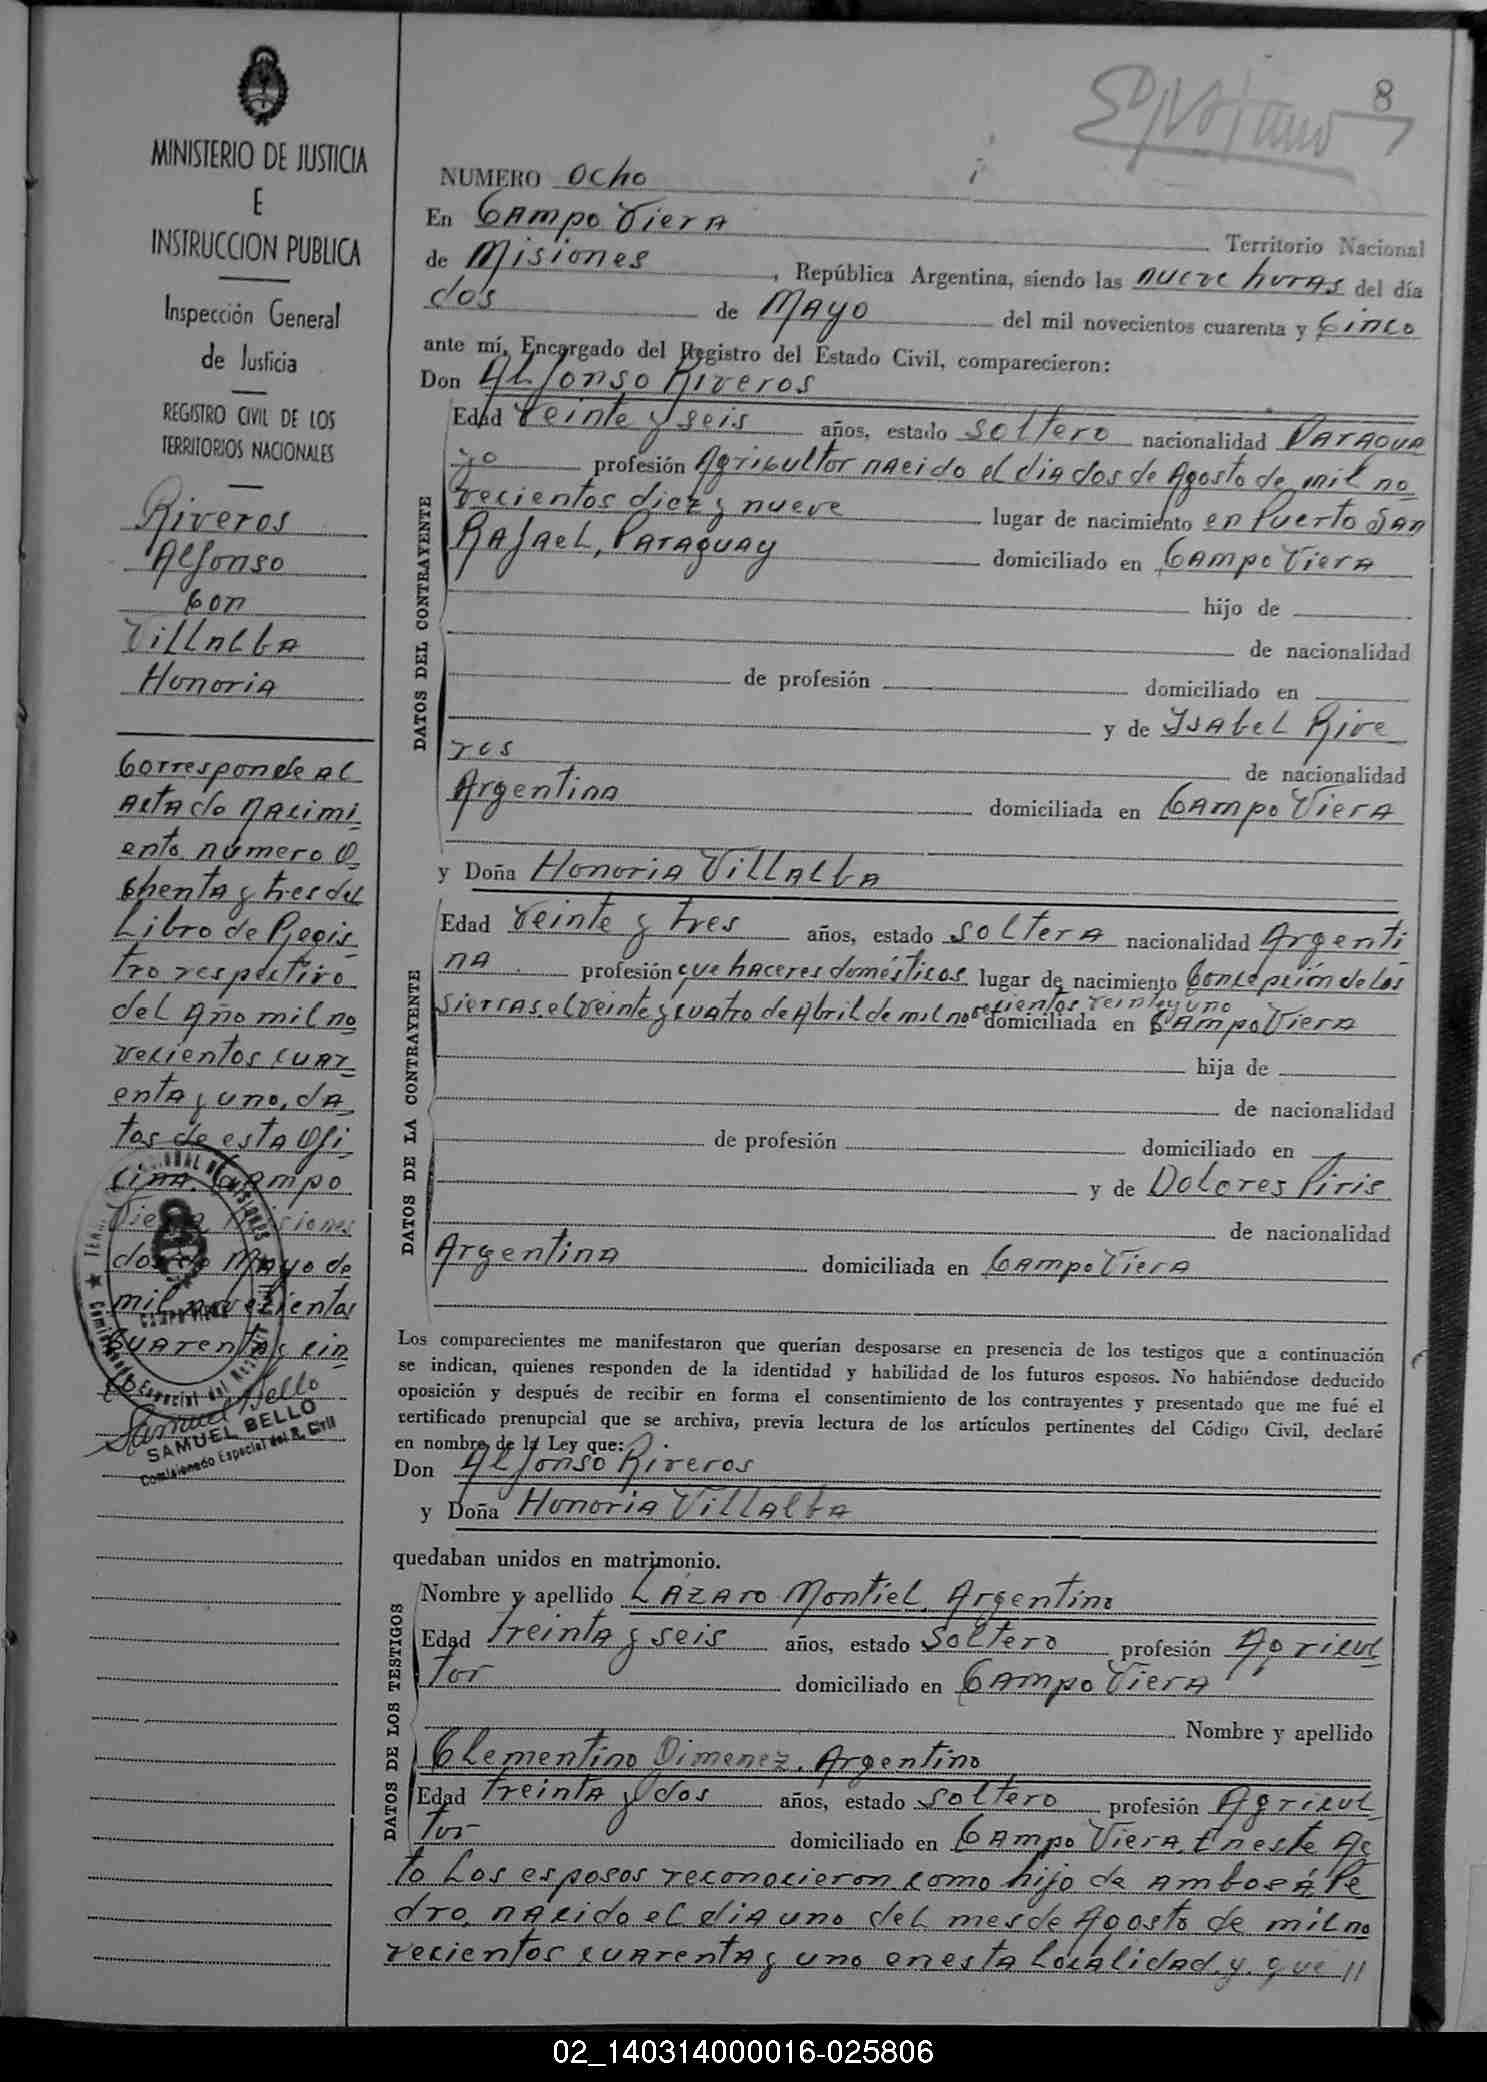 8
MINISTERIO DE JUSTICIA
E
INSTRUCCION PUBLICA
Inspección General
de Justicia
REGISTRO CIVIL DE LOS
TERRITORIOS NACIONALES
Riveros
Alfonso
con
Villalba
Honoria
Corresponde al
acta de nacimi
ento número o
chenta y tres del
Libro de Regis
tro respectivo
del Año mil no
vecientos cuar
enta y uno, da
tos de esta Ofi
cina. Campo
Viera, Misiones
dos de Mayo de
mil novecientos
cuarenta y cin
co
Samuel Bello
SAMUEL BELLO
Comisionado Especial del R. Civil
NUMERO Ocho
En Campo Viera Territorio Nacional
de Misiones, República Argentina, siendo las nueve horas del día
dos de Mayo del mil novecientos cuarenta y Cinco
ante mí, Encargado del Registro del Estado Civil, comparecieron:
Don Alfonso Riveros
DATOS DEL CONTRAYENTE
Edad Veinte y seis años, estado soltero nacionalidad Paragua
yo profesión Agricultor nacido el dia dos de Agosto de mil no
vecientos diez y nueve lugar de nacimiento en Puerto San
Rafael, Paraguay domiciliado en Campo Viera
hijo de
de nacionalidad
de profesión domiciliado en
y de Ysabel Rive
ros de nacionalidad
Argentina domiciliada en Campo Viera
y Doña Honoria Villalba
DATOS DE LA CONTRAYENTE
Edad Veinte y tres años, estado soltera nacionalidad Argenti
na profesión que haceres domésticos lugar de nacimiento Concepción de las
Sierras, el veinte y cuatro de Abril de mil novecientos veinte y uno domiciliada en Campo Viera
hija de
de nacionalidad
de profesión domiciliado en
y de Dolores Piris
de nacionalidad
Argentina domiciliada en Campo Viera
Los comparecientes me manifestaron que querían desposarse en presencia de los testigos que a continuación
se indican, quienes responden de la identidad y habilidad de los futuros esposos. No habiéndose deducido
oposición y después de recibir en forma el consentimiento de los contrayentes y presentado que me fué el
certificado prenupcial que se archiva, previa lectura de los artículos pertinentes del Código Civil, declaré
en nombre de la Ley que:
Don Alfonso Riveros
y Doña Honoria Villalba
quedaban unidos en matrimonio.
DATOS DE LOS TESTIGOS
Nombre y apellido Lazaro Montiel, Argentino
Edad treinta y seis años, estado Soltero profesión Agricul
tor domiciliado en Campo Viera
Nombre y apellido
Clementino Gimenez, Argentino
Edad treinta y dos años, estado Soltero profesión Agricul
tor domiciliado en Campo Viera. En este Ac
to los esposos reconocieron como hijo de ambos á Pe
dro, nacido el dia uno del mes de Agosto de mil no
vecientos cuarenta y uno en esta localidad, y que //
02_140314000016-025806